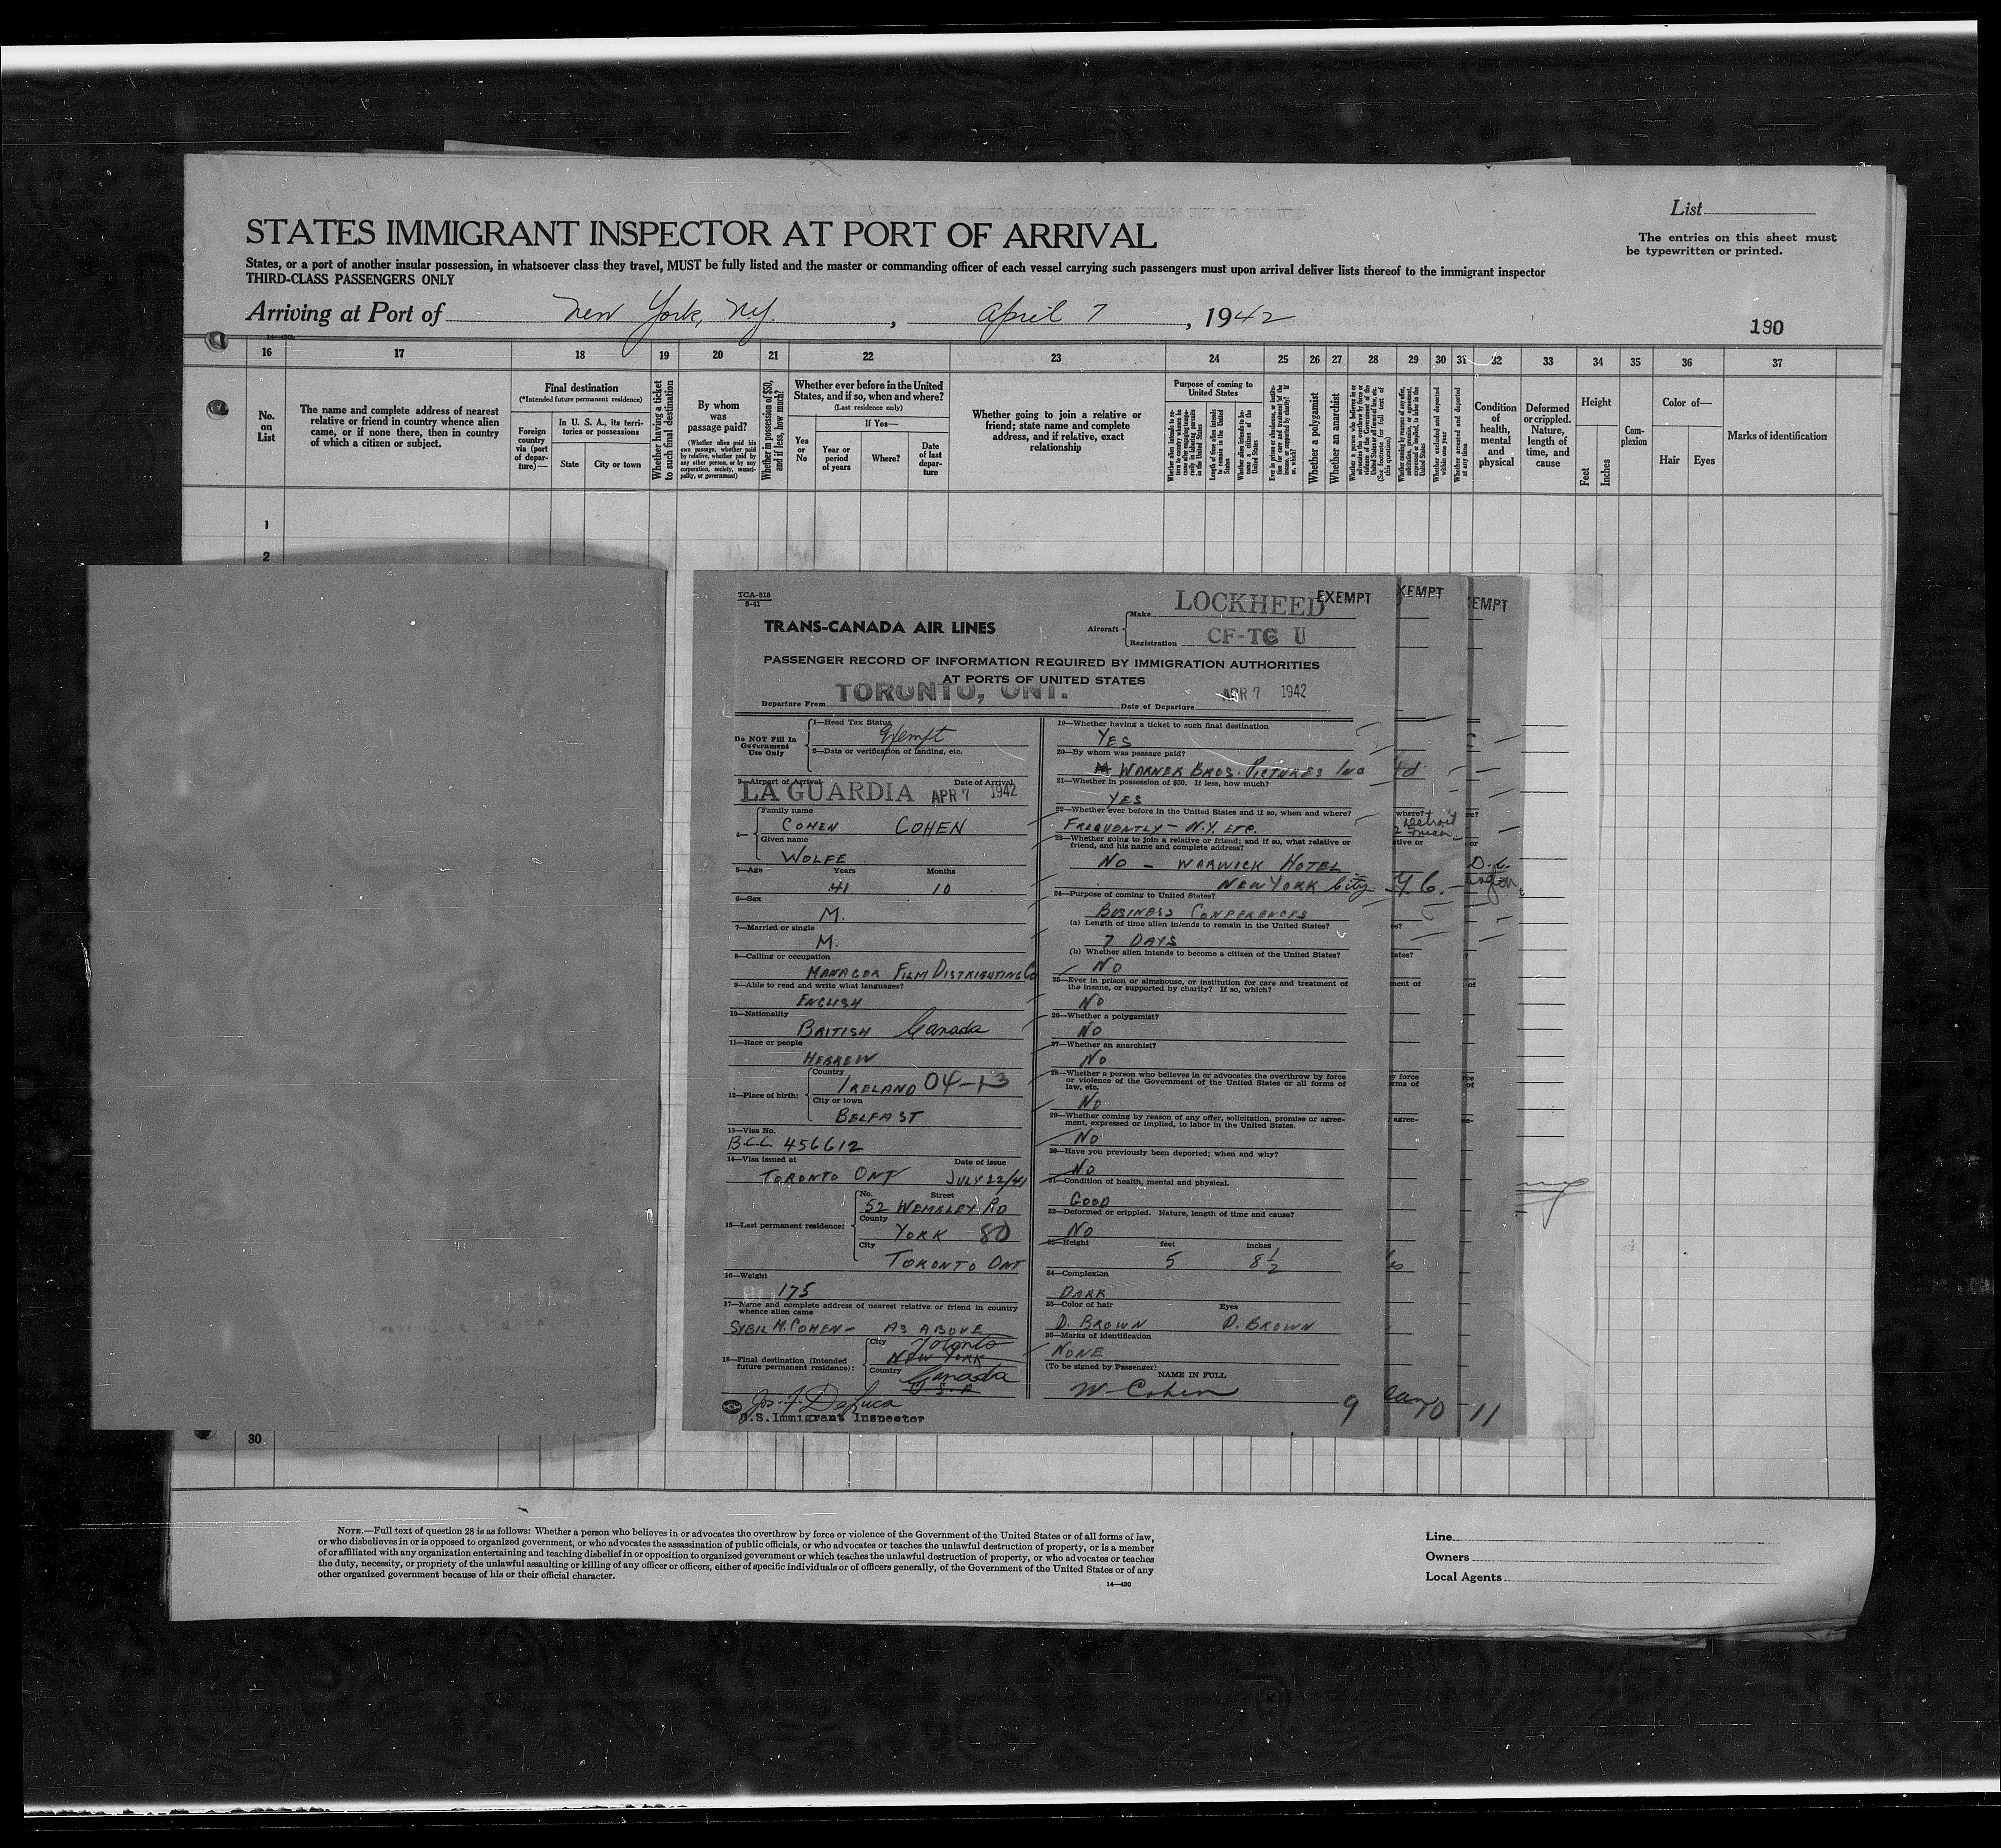 List
STATES IMMIGRANT INSPECTOR AT PORT OF ARRIVAL
The entries on this sheet must
be typewritten or printed.
States, or a port of another insular possession, in whatsoever class they travel, MUST be fully listed and the master or commanding officer of each vessel carrying such passengers must upon arrival deliver lists thereof to the immigrant inspector
THIRD-CLASS PASSENGERS ONLY
Arriving at Port of New York, N.Y. , April 7 , 1942
190
16 17 18 19 20 21 22 23 24 25 26 27 28 29 30 31 32 33 34 35 36 37
No.
on
List
The name and complete address of nearest
relative or friend in country whence alien
came, or if none there, then in country
of which a citizen or subject.
Final destination
(*Intended future permanent residence)
Foreign
country
via (port
of depar-
ture)—
In U. S. A., its terri-
tories or possessions
State City or town
Whether having a ticket
to such final destination
By whom
was
passage paid?
(Whether alien paid his
own passage, whether paid
by relative, whether paid by
any other person, or by any
corporation, society, munici-
pality, or government)
Whether in possession of $50,
and if less, how much?
Whether ever before in the United
States, and if so, when and where?
(Last residence only)
If Yes—
Yes
or
No
Year or
period
of years
Where?
Date
of last
depar-
ture
Whether going to join a relative or
friend; state name and complete
address, and if relative, exact
relationship
Purpose of coming to
United States
Length of time alien intends
to remain in the United
States
Whether alien intends to be-
come a citizen of the
United States
Whether a polygamist
Whether an anarchist
Whether excluded and deported
within one year
Whether arrested and deported
at any time
Condition
of
health,
mental
and
physical
Deformed
or crippled.
Nature,
length of
time, and
cause
Height
Feet
Inches
Com-
plexion
Color of—
Hair Eyes
Marks of identification
1
2
TCA-518
5-41
TRANS-CANADA AIR LINES
Aircraft
Make LOCKHEED
EXEMPT
XEMPT
EMPT
Registration CF-TC U
PASSENGER RECORD OF INFORMATION REQUIRED BY IMMIGRATION AUTHORITIES
AT PORTS OF UNITED STATES
Departure From TORONTO, ONT. Date of Departure APR 7 1942
Do NOT Fill In
Government
Use Only
1—Head Tax Status
Exempt
2—Data or verification of landing, etc.
3—Airport of Arrival Date of Arrival
LA GUARDIA APR 7 1942
4—
Family name
COHEN COHEN
Given name
WOLFE
5—Age Years Months
41 10
6—Sex
M.
7—Married or single
M.
8—Calling or occupation
MANAGER FILM DISTRIBUTING Co
9—Able to read and write what languages?
ENGLISH
10—Nationality
BRITISH Canada
11—Race or people
HEBREW
12—Place of birth:
Country
IRELAND 04-13
City or town
BELFAST
13—Visa No.
B.C.C. 456612
14—Visa issued at Date of issue
TORONTO ONT JULY 22/41
15—Last permanent residence:
No. Street
52 WEMBLEY RD
County
YORK 80
City
TORONTO ONT
16—Weight
175
17—Name and complete address of nearest relative or friend in country
whence alien came
SYBIL M. COHEN - AS ABOVE
18—Final destination (Intended
future permanent residence):
City Toronto
NEW YORK
Country Canada
U S A
Jos. F. DeLuca
U.S. Immigrant Inspector
19—Whether having a ticket to such final destination
YES
20—By whom was passage paid?
WARNER BROS. PICTURES INC
21—Whether in possession of $50. If less, how much?
YES
22—Whether ever before in the United States and if so, when and where?
FREQUENTLY - N.Y. ETC.
23—Whether going to join a relative or friend; and if so, what relative or
friend, and his name and complete address?
NO - WARWICK HOTEL
NEW YORK City
24—Purpose of coming to United States?
BUSINESS CONFERENCES
(a) Length of time alien intends to remain in the United States?
7 DAYS
(b) Whether alien intends to become a citizen of the United States?
NO
25—Ever in prison or almshouse, or institution for care and treatment of
the insane, or supported by charity? If so, which?
NO
26—Whether a polygamist?
NO
27—Whether an anarchist?
NO
28—Whether a person who believes in or advocates the overthrow by force
or violence of the Government of the United States or all forms of
law, etc.
NO
29—Whether coming by reason of any offer, solicitation, promise or agree-
ment, expressed or implied, to labor in the United States.
NO
30—Have you previously been deported; when and why?
NO
31—Condition of health, mental and physical.
GOOD
32—Deformed or crippled. Nature, length of time and cause?
NO
33—Height feet inches
5 8 1/2
34—Complexion
DARK
35—Color of hair Eyes
D. BROWN D. BROWN
36—Marks of identification
NONE
(To be signed by Passenger)
NAME IN FULL
W Cohen
9
10
11
where?
Detroit
ative or
ates?
ment of
by force
rms of
agree-
30
NOTE.—Full text of question 28 is as follows: Whether a person who believes in or advocates the overthrow by force or violence of the Government of the United States or of all forms of law,
or who disbelieves in or is opposed to organized government, or who advocates the assassination of public officials, or who advocates or teaches the unlawful destruction of property, or is a member
of or affiliated with any organization entertaining and teaching disbelief in or opposition to organized government or which teaches the unlawful destruction of property, or who advocates or teaches
the duty, necessity, or propriety of the unlawful assaulting or killing of any officer or officers, either of specific individuals or of officers generally, of the Government of the United States or of any
other organized government because of his or their official character.
14—430
Line
Owners
Local Agents